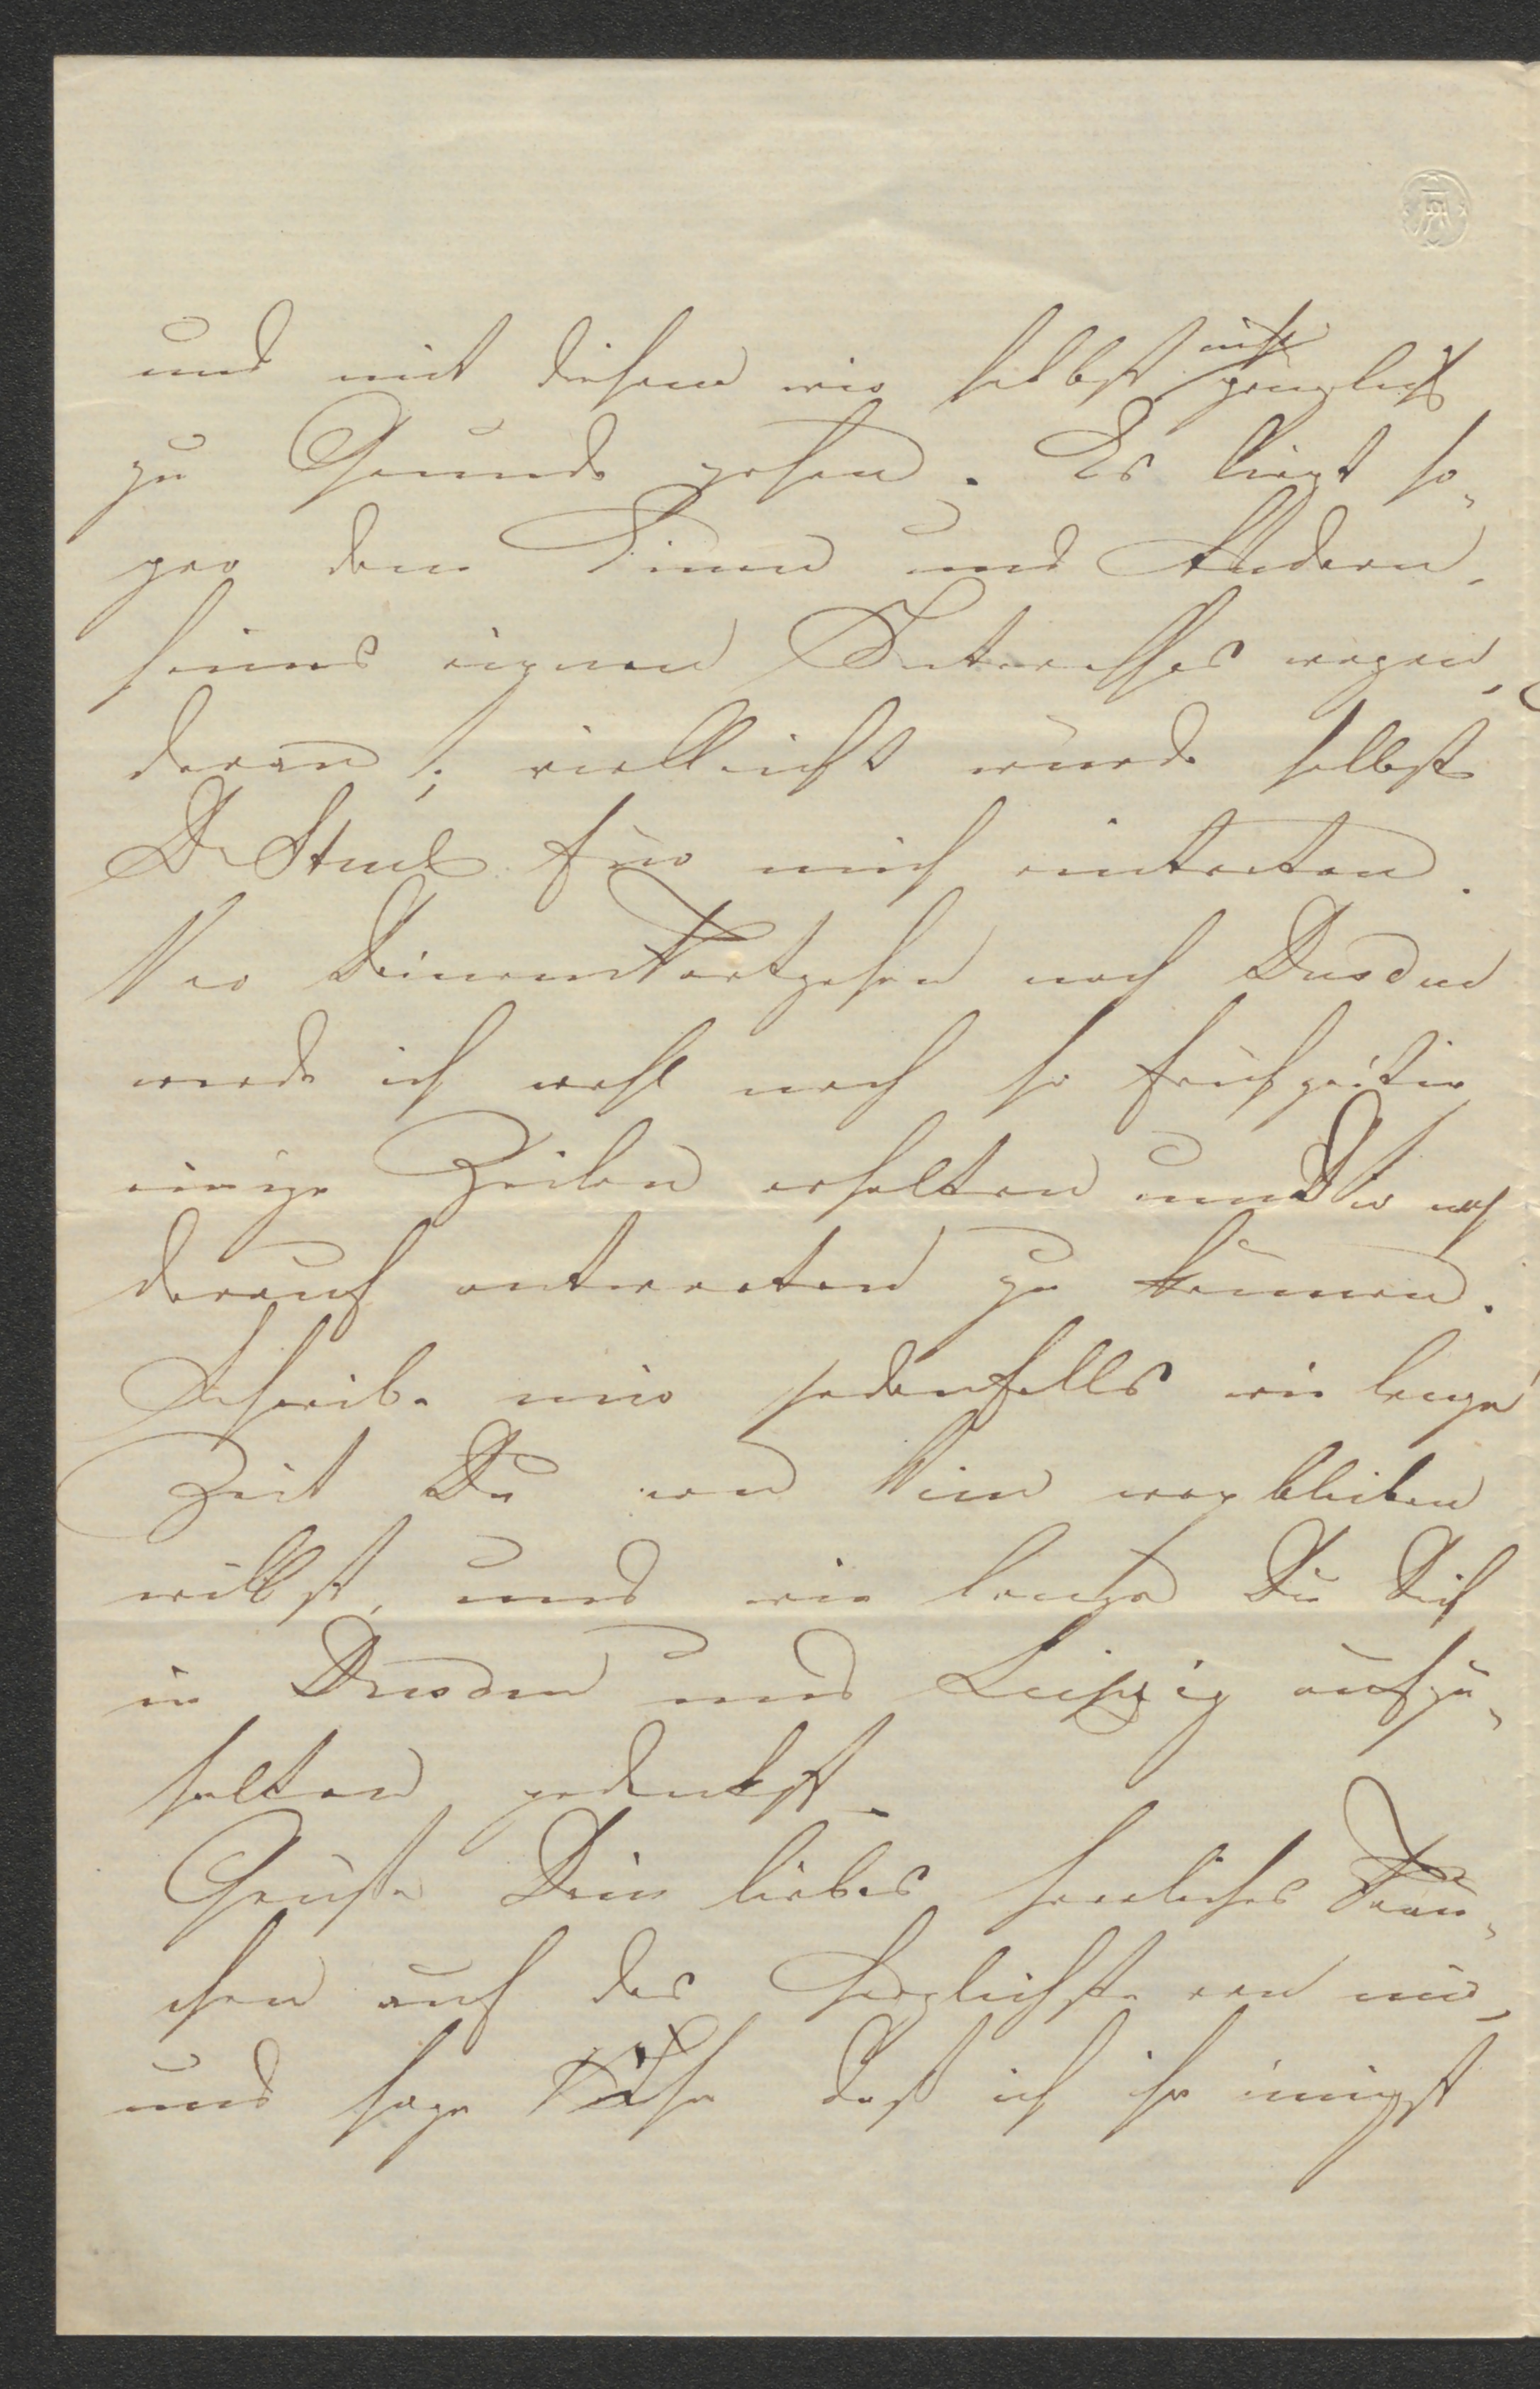 und mit diesem wir selbst nicht gänzlich
zu Grunde gehen. Es liegt so¬
gar dem Einen und Andern,
seines eignen Interesses wegen,
daran; vielleicht würde selbst
Dr für mich eintreten.
Vor Deinem Fortgehen nach Dresden
werde ich wohl noch so frühzeitig
einige Zeilen erhalten um Dir noch
darauf antworten zu können.
Schreibe mir jedenfalls wie lange
Zeit Du von Wien wegbleiben
willst, und wie lange Du Dich
in Dresden und Leipzig aufzu¬
halten gedenkst.
Grüße Dein liebes herrliches Frau¬
chen auf das Herzlichste von mir,
und sage Käthe daß ich ihr innigst